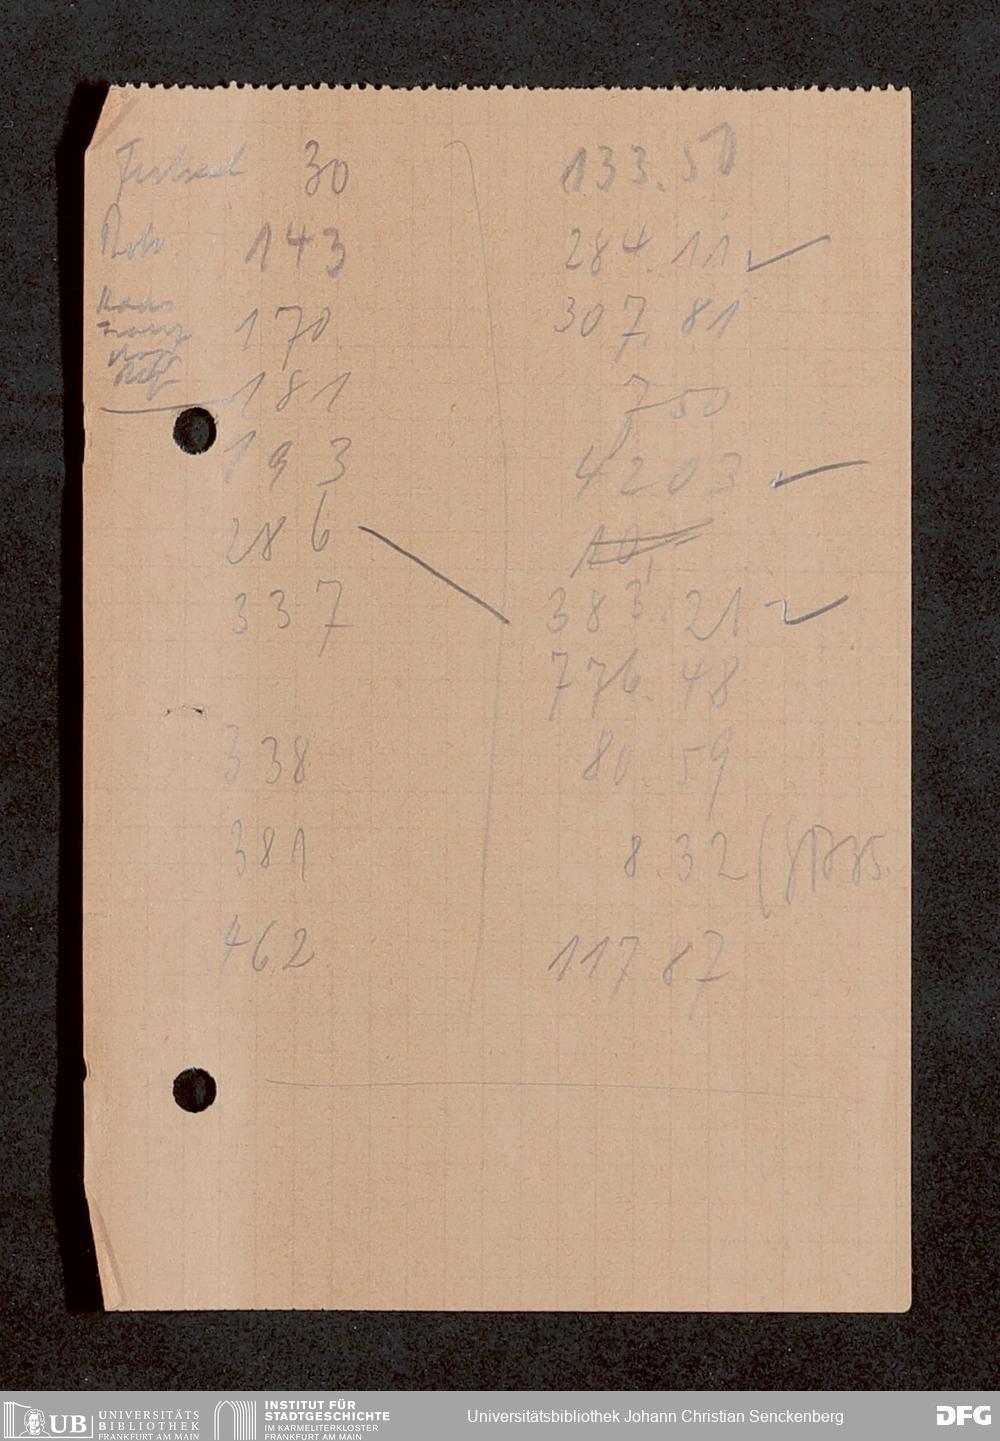 30 133.50
143 284.11 ✓
170 307.81
181 750
193 4203 ✓
286 10,
337 383.21 ✓
776.48
338 80.59
381 8.32
462 117 87
UB UNIVERSITÄTS
BIBLIOTHEK
FRANKFURT AM MAIN
INSTITUT FÜR
STADTGESCHICHTE
IM KARMELITERKLOSTER
FRANKFURT AM MAIN
Universitätsbibliothek Johann Christian Senckenberg
DFG